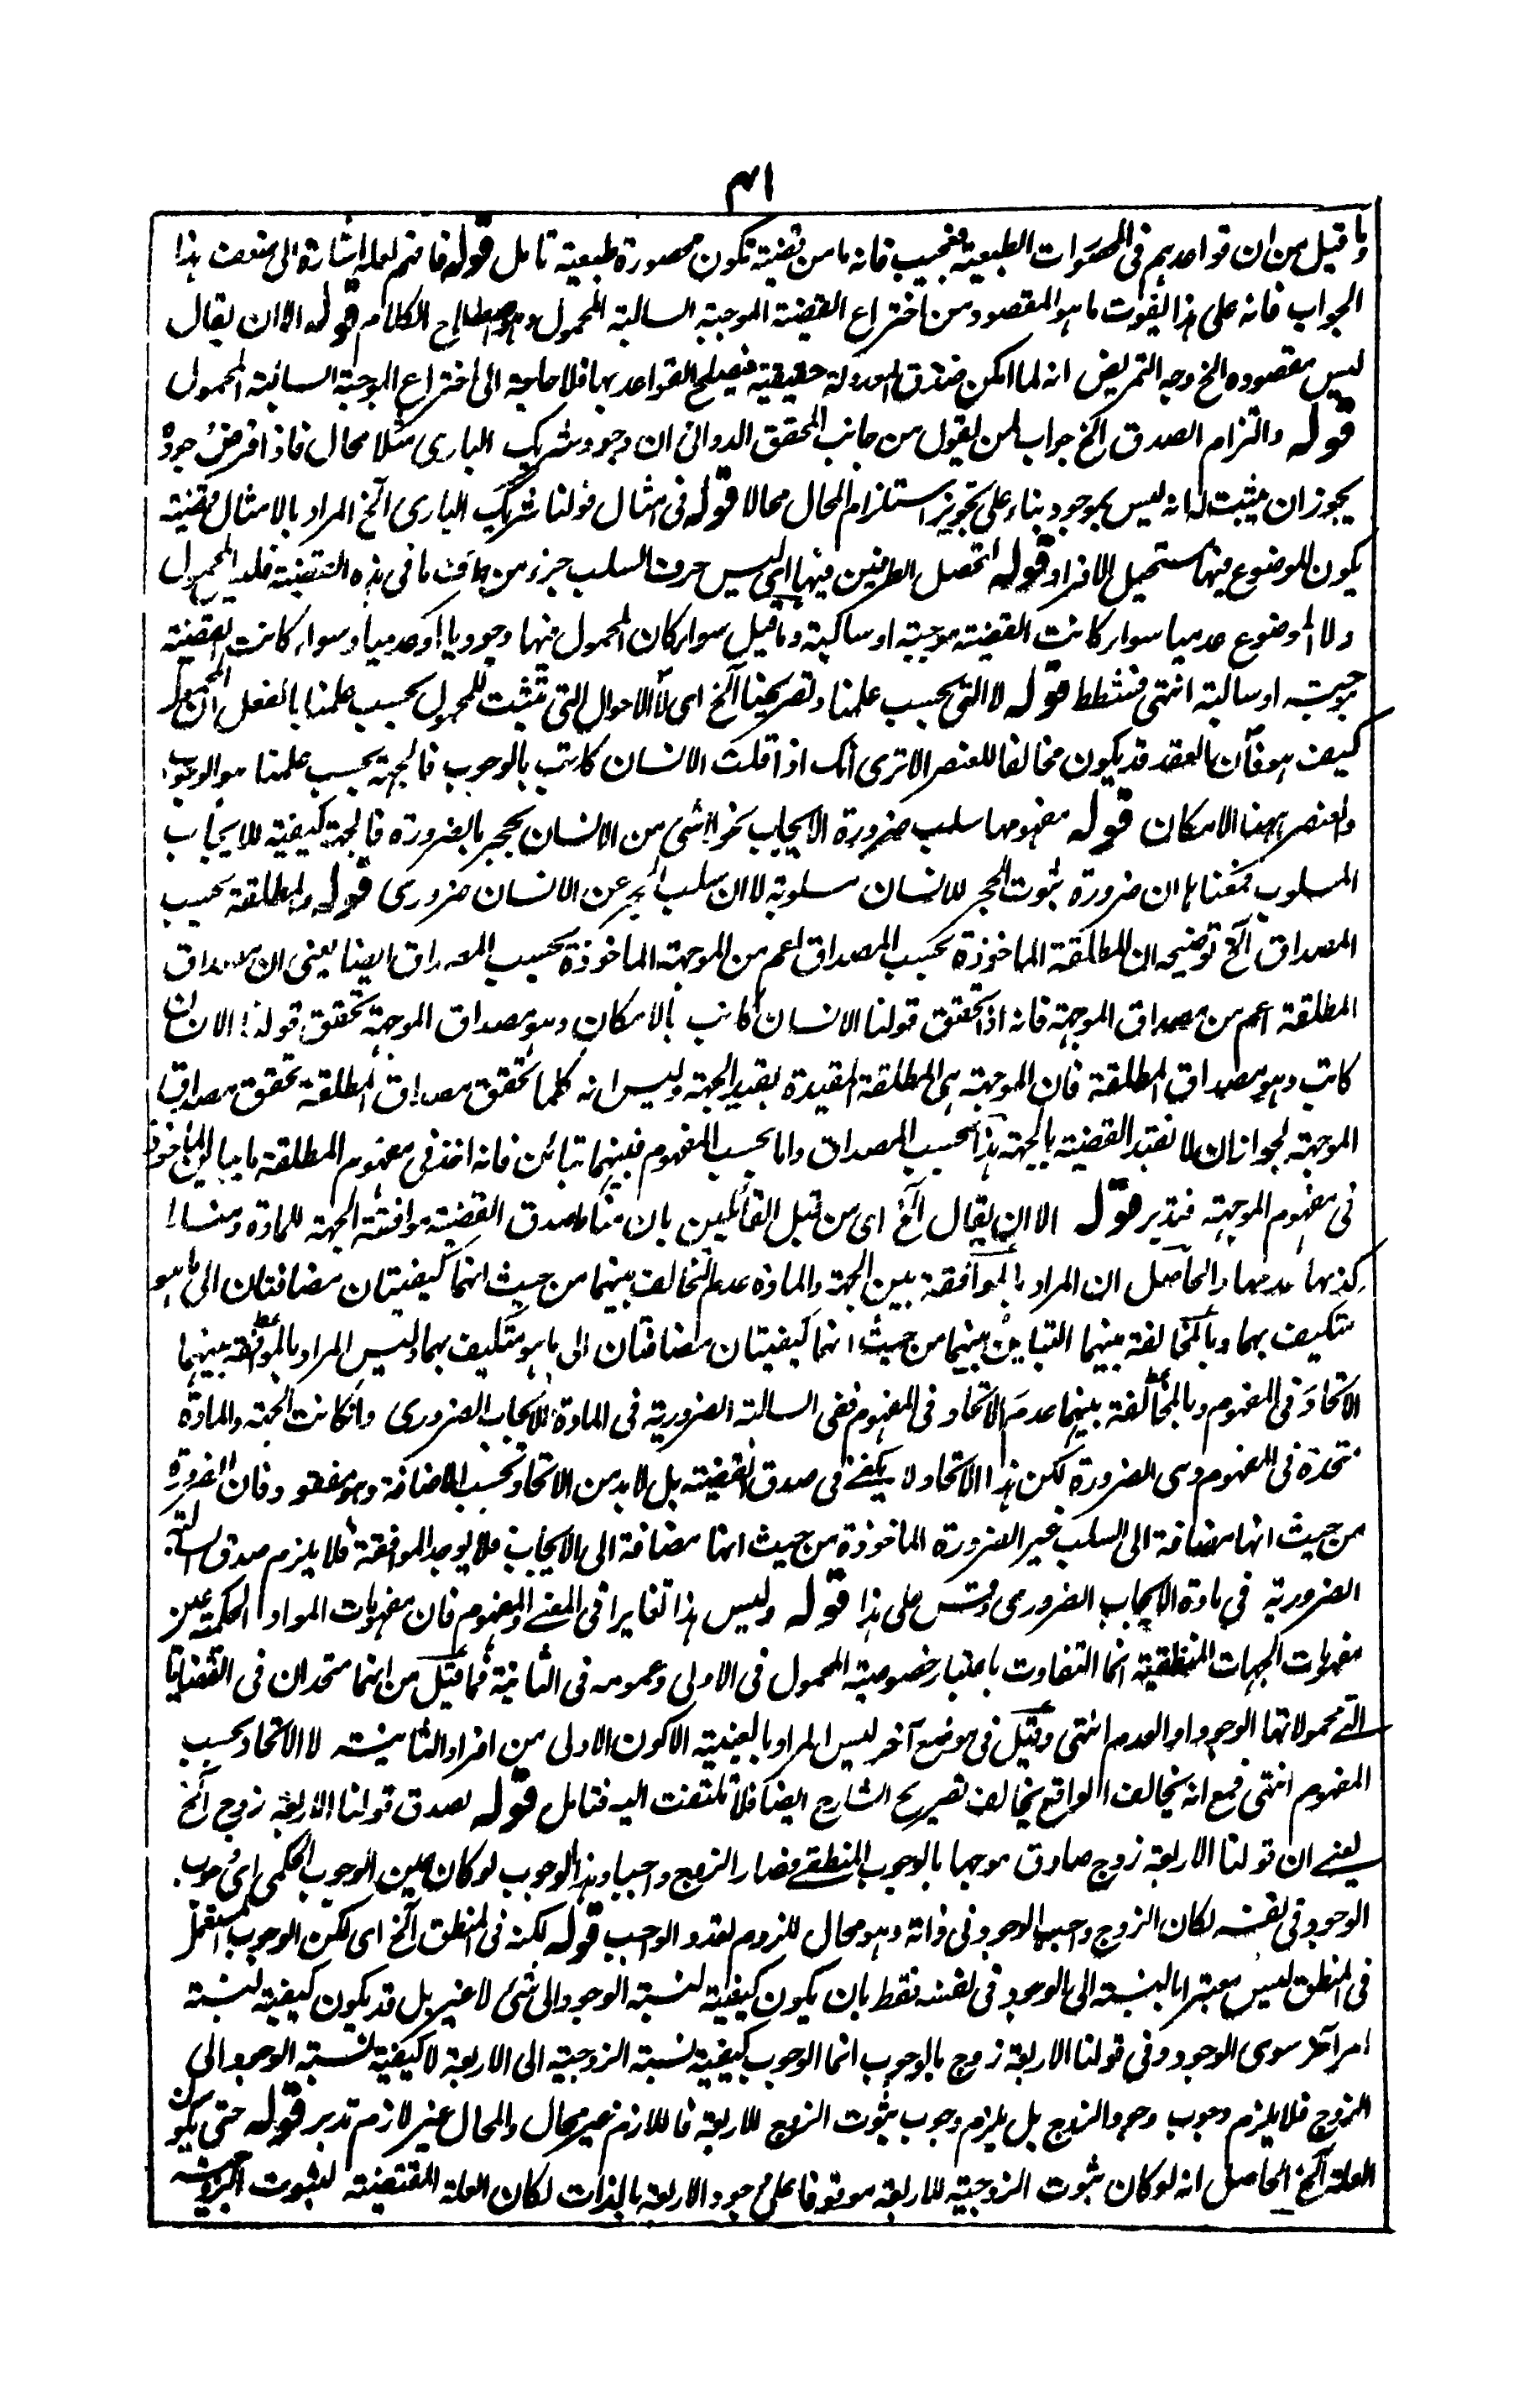 ۴۱
وما قيل من ان قواعدهم فى المحصورات الطبعية فعجيب فانه ما من قضية تكون محصورة طبعية تامل قوله فافهم لعله اشارة الى ضعف هذا
الجواب فانه على هذا يفوت ما هو المقصود من اختراع القضية الموجبة السالبة المحمول وهو اصلاح الكلام قوله الا ان يقال
ليس مقصوده الخ وجه التمريض انه لما امكن صدق المعدولة حقيقية فيصلح القواعد بها فلا حاجة الى اختراع الموجبة السالبة المحمول
قوله والتزام الصدق الخ جواب لمن يقول من جانب المحقق الدوانى ان وجود شريك البارى مثلا محال فاذا فرض وجوده
يجوز ان يثبت له انه ليس بموجود بناء على تجويز استلزام المحال محالا قوله فى امثال قولنا شريك البارى الخ المراد بالامثال قضية
يكون الموضوع فيها مستحيل الافراد قوله لتحصل الطرفين فيها اى ليس حرف السلب جزء من طرف ما فى هذه القضية فليس المحمول
ولا الموضوع عدميا سواء كانت القضية موجبة او سالبة وما قيل سواء كان المحمول منها وجوديا او عدميا وسواء كانت القضية
موجبة او سالبة انتهى فشطط قوله لا التى بحسب علمنا وتصريحنا الخ اى لا الاحوال التى تثبت للمحمول بحسب علمنا بالفعل ان المحمول
كيف هو فان العقد قد يكون مخالفا للعنصر الا ترى انك اذا قلت الانسان كاتب بالوجوب فالجهة بحسب علمنا هو الوجوب
والعنصر ههنا الامكان قوله مفهومها سلب ضرورة الايجاب نحو لا شى من الانسان بحجر بالضرورة فالجهة كيفية للايجاب
المسلوب فمعناها ان ضرورة ثبوت الحجر للانسان مسلوبة لا ان سلب الحجر عن الانسان ضرورى قوله والمطلقة بحسب
المصداق الخ توضيحه ان المطلقة الماخوذة بحسب المصداق اعم من الموجهة الماخوذة بحسب المصداق ايضا يعنى ان مصداق
المطلقة اعم من مصداق الموجهة فانه اذا تحقق قولنا الانسان كاتب بالامكان وهو مصداق الموجهة تحقق قولنا الانسان
كاتب وهو مصداق المطلقة فان الموجهة هى المطلقة المقيدة بقيد الجهة وليس انه كلما تحقق مصداق المطلقة تحقق مصداق
الموجهة لجواز ان لا نقيد القضية بالجهة هذا بحسب المصداق واما بحسب المفهوم فبينهما تباين فانه اخذ فى مفهوم المطلقة ما يباين الماخوذ
فى مفهوم الموجهة فتدبر قوله الا ان يقال الخ اى من قبل القائلين بان مناط صدق القضية موافقة الجهة للمادة ومناط
كذبها عدمها والحاصل ان المراد بالموافقة بين الجهة والمادة عدم التخالف بينهما من حيث انهما كيفيتان مضافتان الى ما هو
متكيف بهما وبالمخالفة بينهما التباين بينهما من حيث انهما كيفيتان مضافتان الى ما هو متكيف بهما وليس المراد بالموافقة بينهما
الاتحاد فى المفهوم وبالمخالفة بينهما عدم الاتحاد فى المفهوم ففى السالبة الضرورية فى المادة للايجاب الضرورى وان كانت الجهة والمادة
متحدة فى المفهوم وهى الضرورة لكن هذا الاتحاد لا يكفى فى صدق القضية بل لابد من الاتحاد بحسب الاضافة وهو مفقود فان الضرورة
من حيث انها مضافة الى السلب غير الضرورة الماخوذة من حيث انها مضافة الى الايجاب فلا يوجد الموافقة فلا يلزم صدق السالبة
الضرورية فى مادة الايجاب الضرورى وقس على هذا قوله وليس هذا تغايرا فى المعنى والمفهوم فان مفهومات المواد الحكمية عين
مفهومات الجهات المنطقية انما التفاوت باعتبار خصوصية المحمول فى الاولى وعمومه فى الثانية فما قيل من انهما متحدان فى القضايا
التى محمولاتها الوجود او العدم انتهى وقيل فى موضع آخر ليس المراد بالعينية الا كون الاولى من افراد الثانية لا الاتحاد بحسب
المفهوم انتهى فمع انه يخالف الواقع يخالف تصريح الشارح ايضا فلا تلتفت اليه فتامل قوله لصدق قولنا الاربعة زوج الخ
يعنى ان قولنا الاربعة زوج صادق موجها بالوجوب المنطقى فصار الزوج واجبا وهذا الوجوب لو كان عين الوجوب الحكمى اى وجوب
الوجود فى نفسه لكان الزوج واجب الوجود فى ذاته وهو محال للزوم تعدد الواجب قوله لكنه فى المنطق الخ اى لكن الوجوب المستعمل
فى المنطق ليس معتبرا بالنسبة الى الوجود فى نفسه فقط بان يكون كيفية لنسبة الوجود الى شئ لا غير بل قد يكون كيفية لنسبة
امر آخر سوى الوجود وفى قولنا الاربعة زوج بالوجوب انما الوجوب كيفية نسبة الزوجية الى الاربعة لا كيفية نسبة الوجود الى
الزوج فلا يلزم وجوب وجود الزوج بل يلزم وجوب ثبوت الزوج للاربعة فاللازم غير محال والمحال غير لازم تدبر قوله حتى يكون
العلة الخ الحاصل انه لو كان ثبوت الزوجية للاربعة موقوفا على وجود الاربعة بالذات لكان العلة المقتضية لثبوت الزوجية